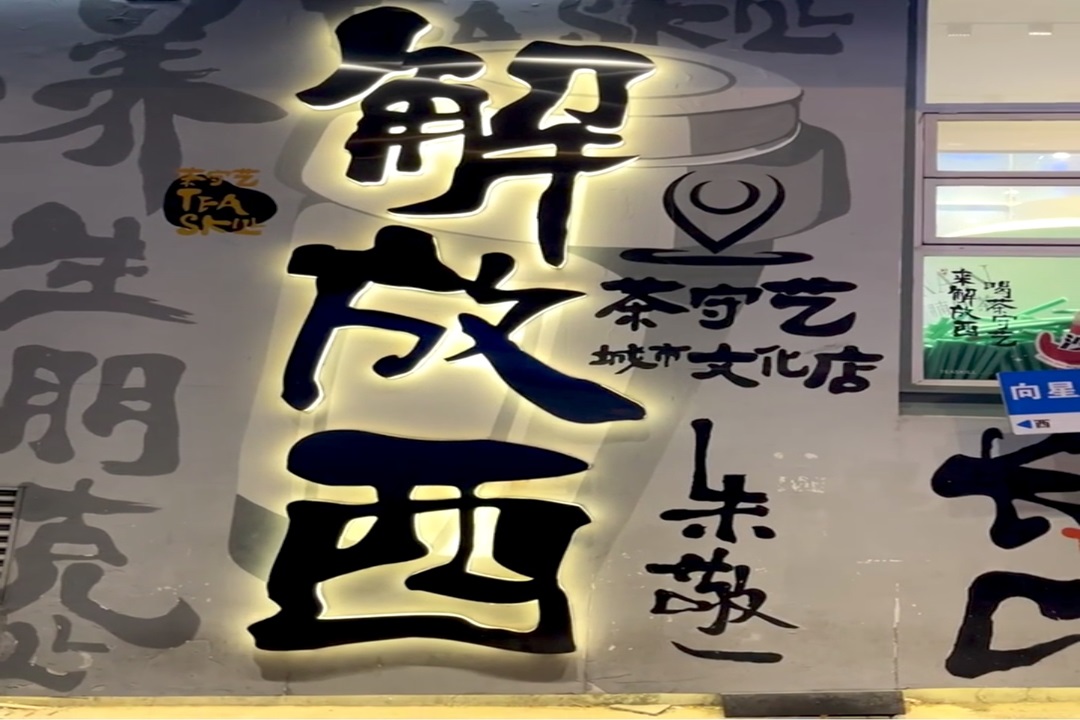 养生朋克
TEA SKILL
茶守艺
TEA
SKILL
解放西
茶守艺
城市文化店
朱敬一
喝茶守艺
来解放西
向星
西